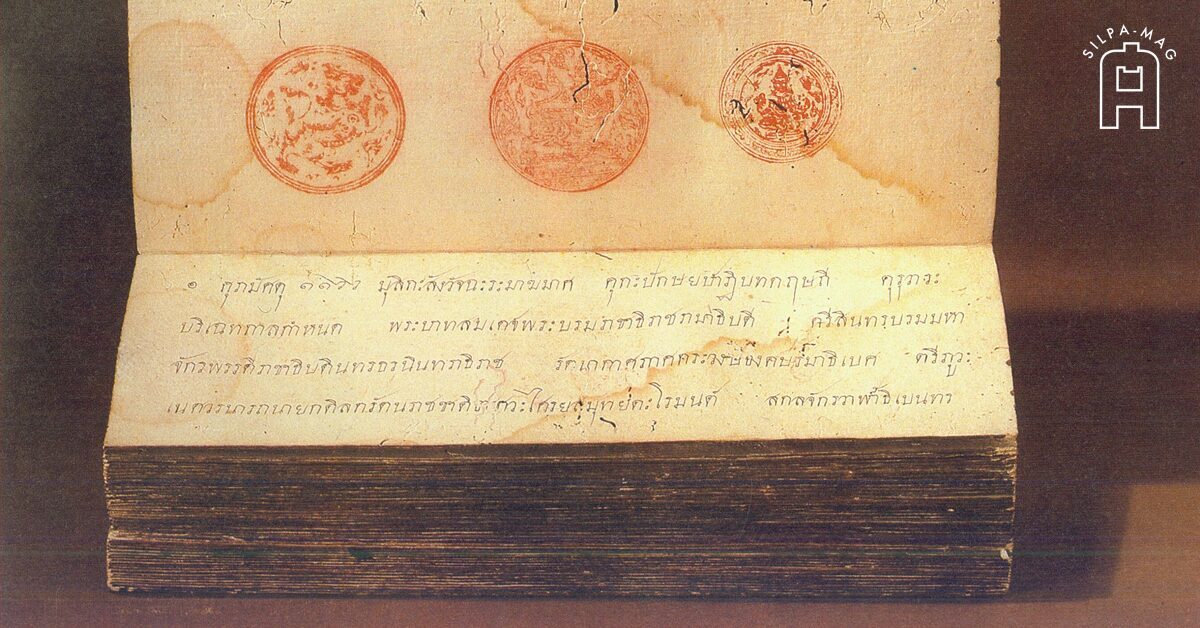 SILPA-MAG
๑ ศุภมัศดุ ๑๑๖๖ มุสิกะสังวัจฉะระมาฆมาศ ศุกะปักษย คฤษถี คุรุวาระ
บริเฉทกาลกำหนด พระบาทสมเดจพระบรมราชาธิราชรามาธิบดี ศรีสินทรบรมมหา
จักรพรรดิราชาธิบดินทรธรนินทราธิราช รัตนากาศภาศคระวงษ องคบรมาธิเบศ ตรีภูวะ
เนศวรนารถนายกดิลกรัตนราชชาติ สมุทย สกลจักรวาฬาธิเบนทร